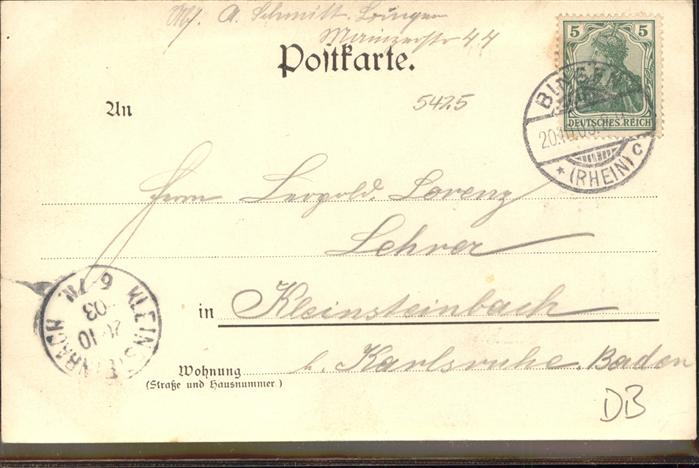 A. Schmitt. Bingen
Mainzerstr 44
Postkarte.
5 5
DEUTSCHES REICH
BINGEN
20.10.03
* (RHEIN) C
5425
An
Herrn Leopold Lorenz
Lehrer
in Kleinsteinbach
b. Karlsruhe. Baden
Wohnung
(Straße und Hausnummer)
KLEINSTEINBACH
20 10
03
6-7N.
DB